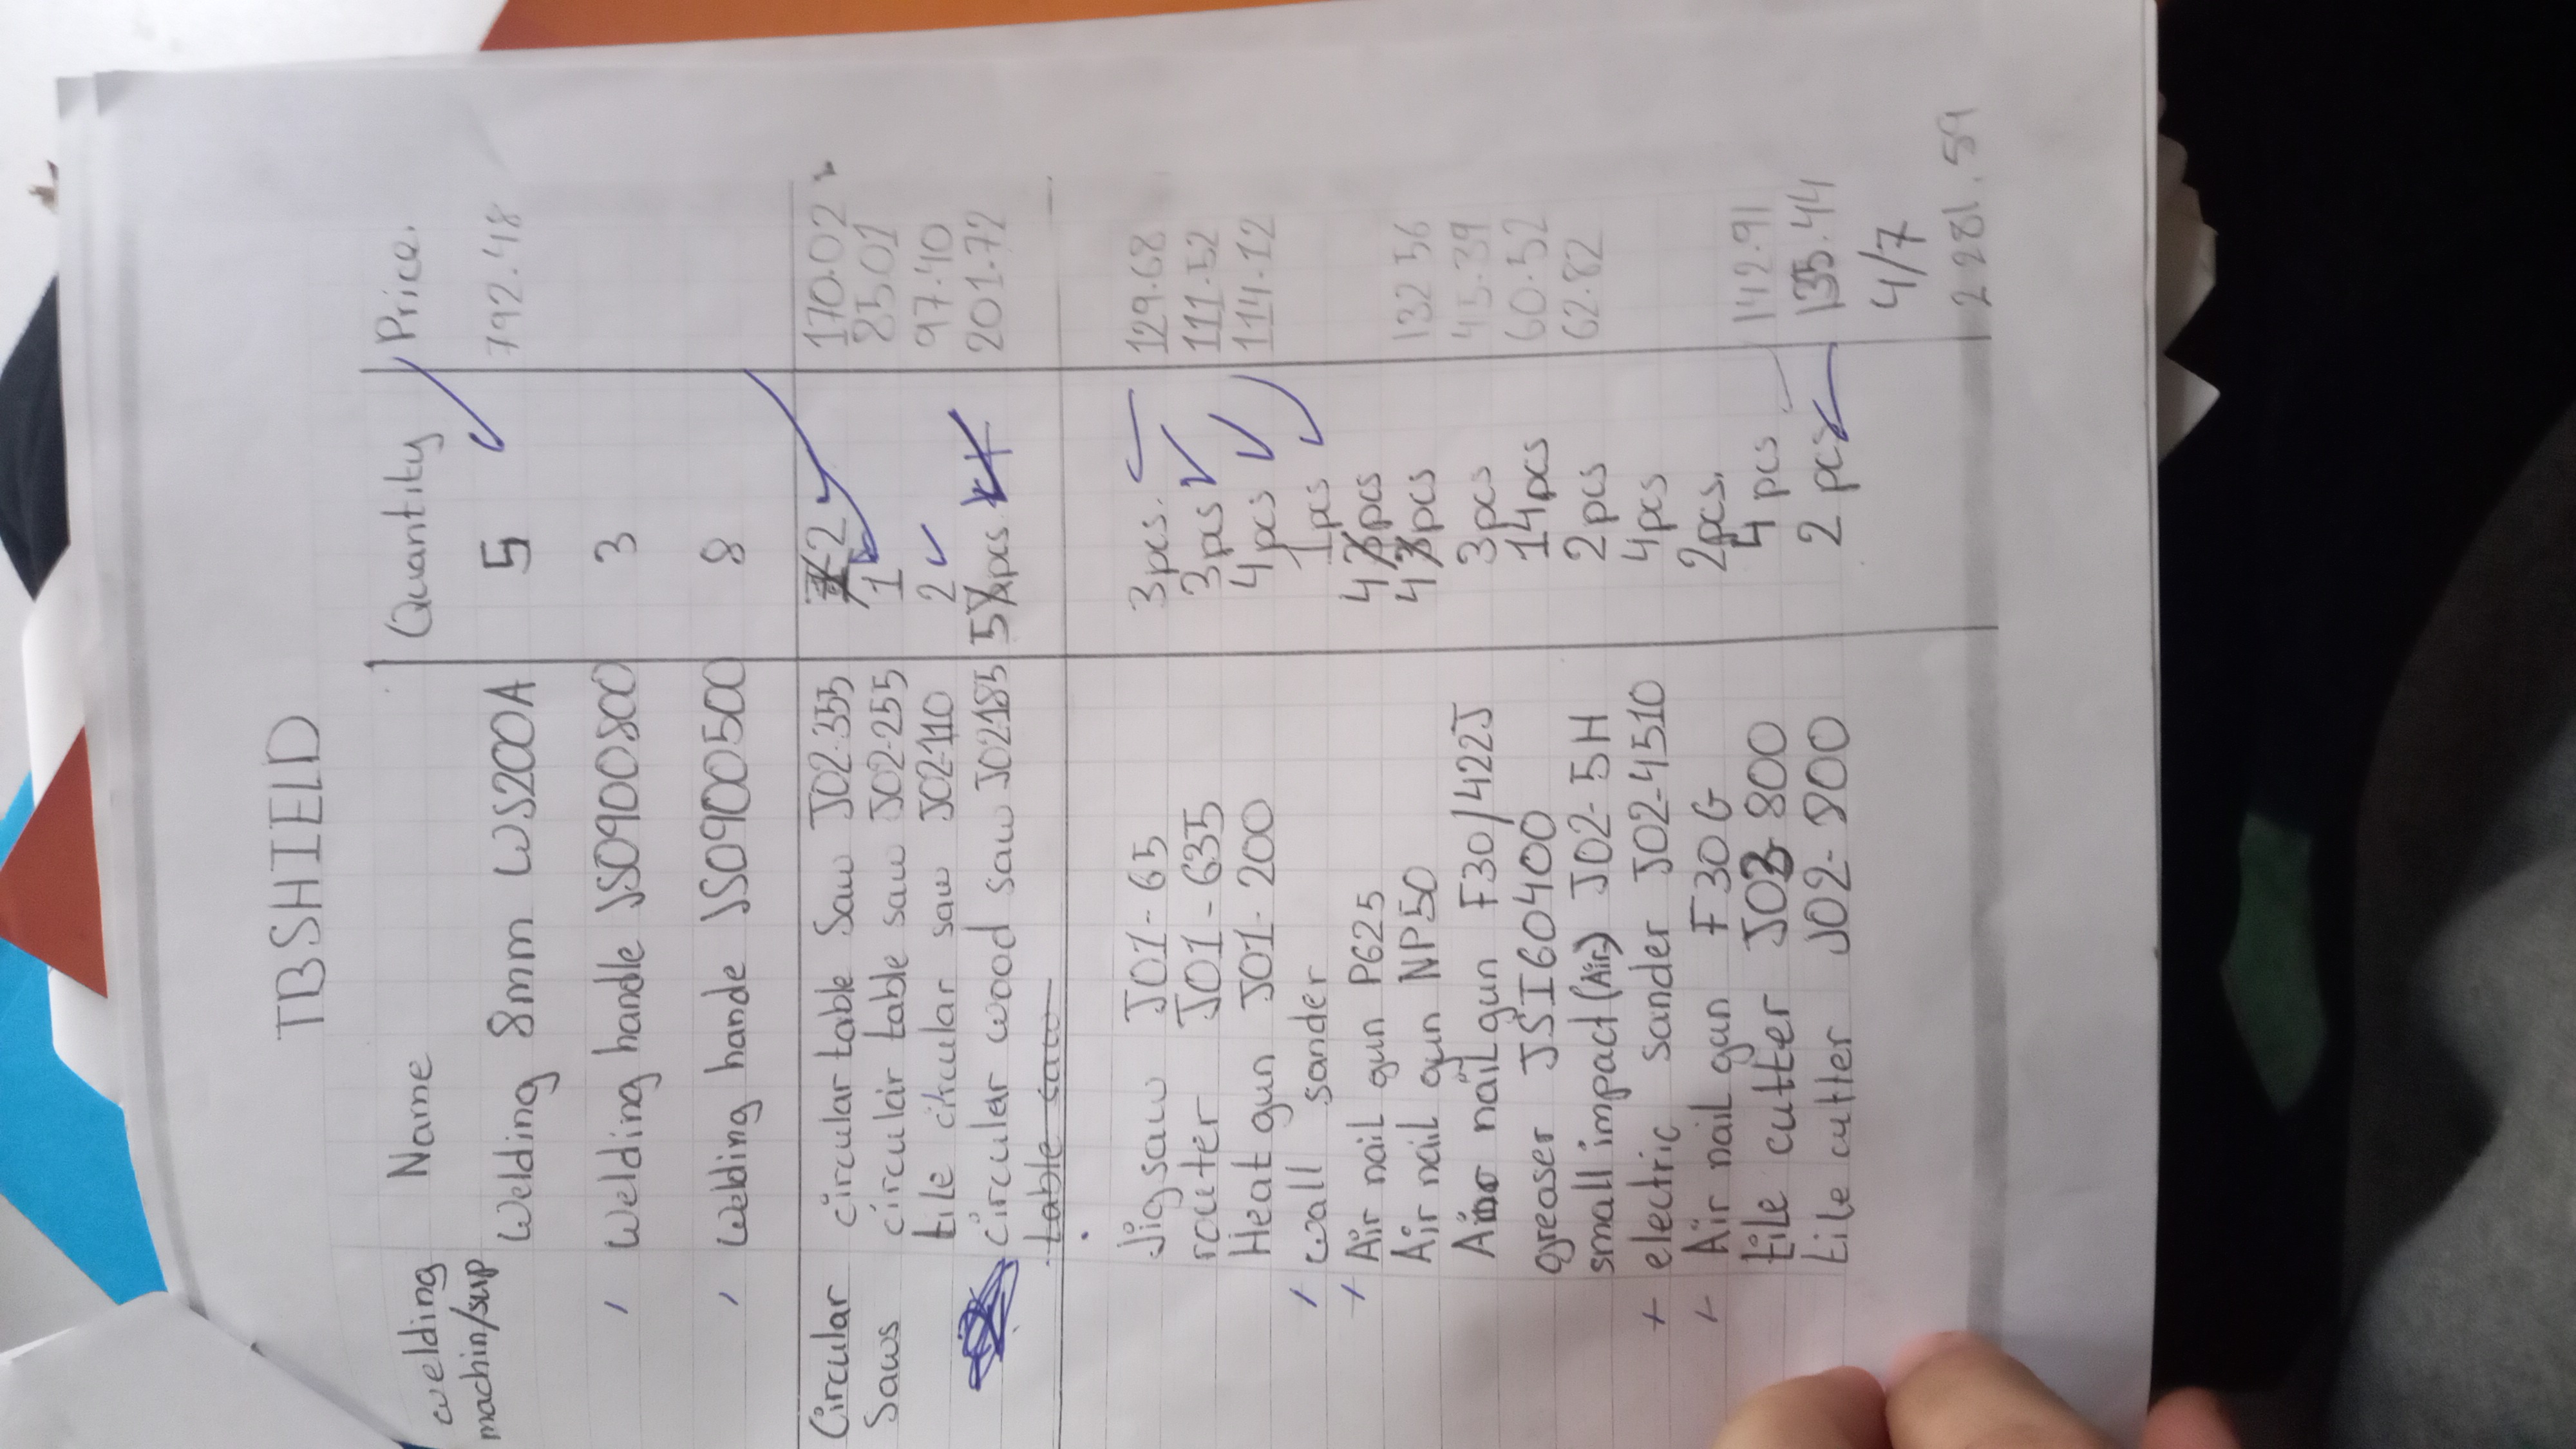 TBSHIELD
Name Quantity Price.
welding machin/sup Welding 8mm WS200A 5 792.48
Welding handle JS0900800 3
Welding hande JS0900500 8
Circular Saws circular table Saw J02-355 2 170.02
circulair table saw J02-255 1 85.01
tile circular saw J02-110 2 97.40
circular wood saw J02185 5 pcs 201.72
table saw
Jigsaw J01-65 3pcs. 129.68
router J01-635 3pcs 111.52
Heat gun J01-200 4pcs 114.12
wall sander 1pcs
+ Air nail gun P625 4 pcs
Air nail gun NP50 4 pcs 132 56
Air nail gun F30/422J 3pcs 45.39
greaser JSI60400 14pcs 60.52
small impact (Air) J02-5H 2pcs 62.82
+ electric sander J02-4510 4pcs
Air nail gun F30G 2pcs.
tile cutter J03-800 4 pcs 142.91
tile cutter J02-800 2 pcs 135.44
4/7
2281.59